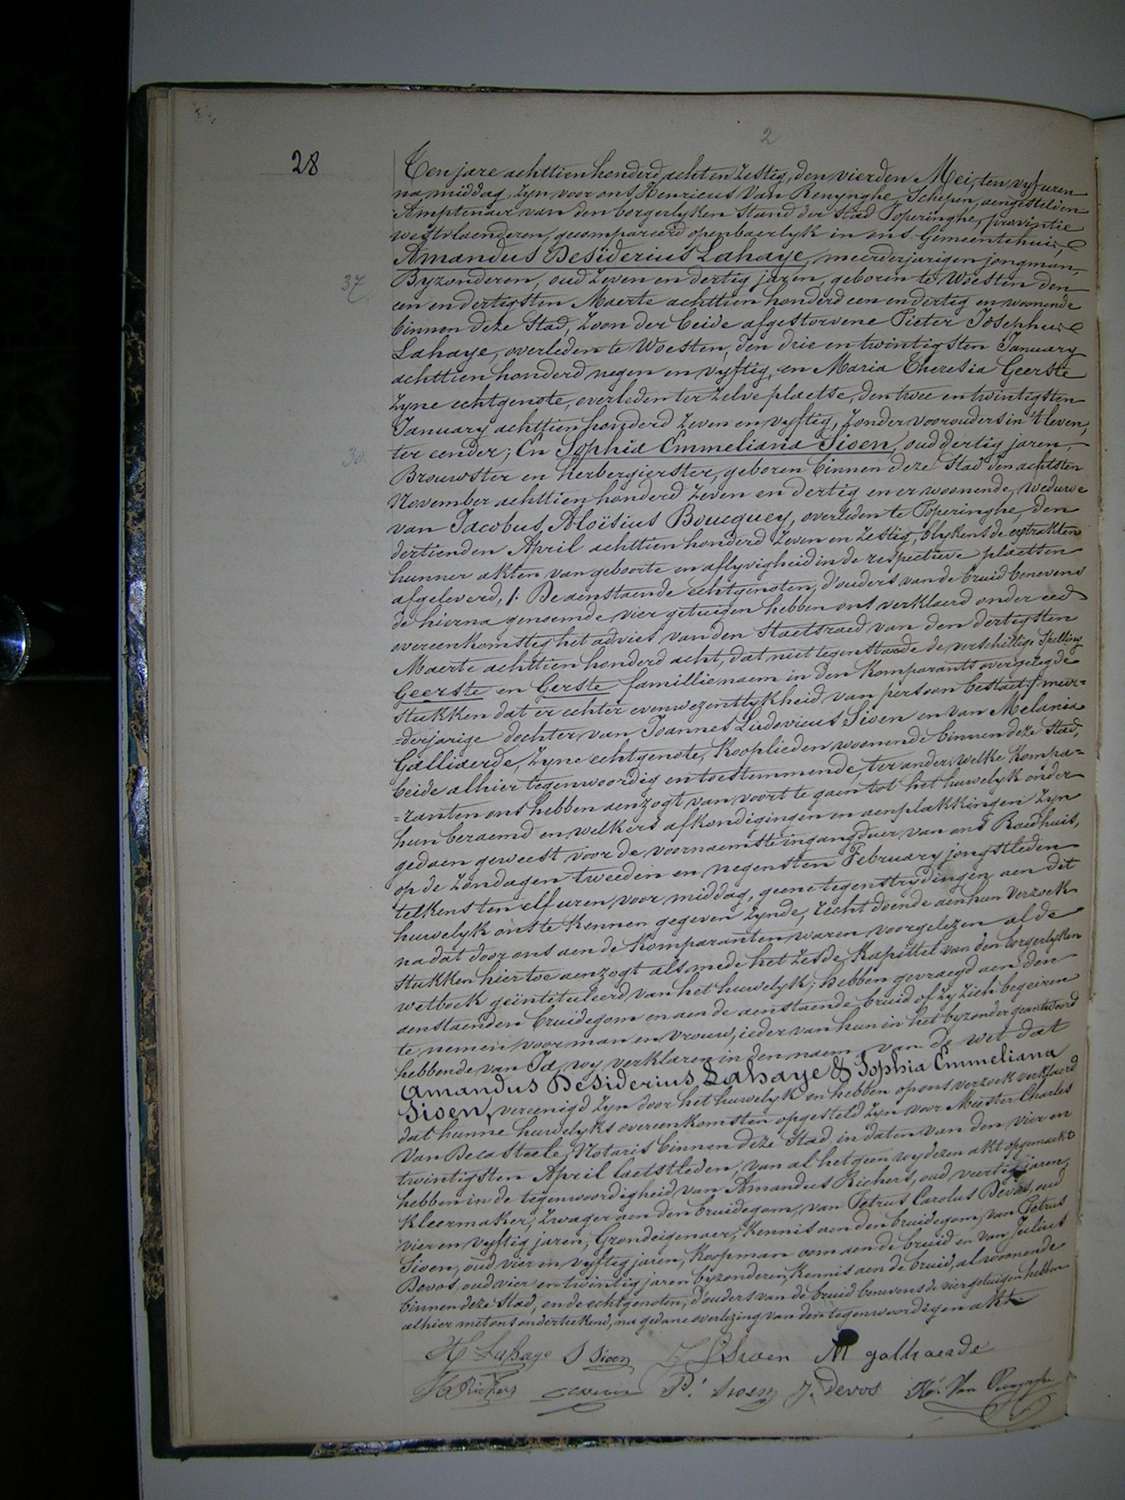 2
28
Ten jare achttien honderd acht en zestig, den vierden Mei, ten vyf uren
na middag, zyn voor ons Henricus Van Renynghe, Schepen, aengestelden
Amptenaer van den borgerlyken stand der stad Poperinghe, provintie
westvlaenderen, gecompareerd openbaerlyk in ons Gemeentehuis,
Amandus Desiderius Lahaye, meerderjarigen jongman,
37
Byzonderen, oud zeven en dertig jaren, geboren te Woesten den
een en dertigsten Maerte achttien honderd een en dertig en woonende
binnen deze Stad, zoon der beide afgestorvene Pieter Josephus
Lahaye, overleden te Woesten, den drie en twintigsten January
achttien honderd negen en vyftig, en Maria Theresia Geerste
zyne echtgenote, overleden ter zelve plaetse, den twee en twintigsten
January achttien honderd zeven en vyftig, zonder voorouders in 't leven,
30
ter eender; En Sophia Emmeliana Sioen, oud dertig jaren,
Brouwster en herbergierster, geboren binnen deze Stad den achtsten
November achttien honderd zeven en dertig en er woonende, weduwe
van Jacobus Aloïsius Boucquey, overleden te Poperinghe, den
dertienden April achttien honderd zeven en zestig, blykens de extrakten
hunner akten van geboorte en aflyvigheid in de respectieve plaetsen
afgeleverd, /. De aenstaende echtgenoten, d'ouders van de bruid benevens
de hierna genoemde vier getuigen hebben ons verklaerd onder eed
overeenkomstig het advies van den Staetsraed van den dertigsten
Maerte achttien honderd acht, dat niettegenstaende de verschillige spelling
Geerste en Gerste famillienaem in den komparants overgelegde
stukken dat er echter evenwezentlykheid van persoon bestaet / meer=
=derjarige dochter van Joannes Ludovicus Sioen en van Melania
Galliaerde, zyne echtgenote, kooplieden woonende binnen deze Stad,
beide alhier tegenwoordig en toestemmende, ter ander; welke kompa=
=ranten ons hebben aenzogt van voort te gaen tot het huwelyk onder
hun beraemd en welkers afkondigingen en aenplakkingen zyn
gedaen geweest voor de voornaemste ingangdeur van ons Raedhuis,
op de zondagen tweeden en negensten February jongstleden
telkens ten elf uren, voor middag, geene tegenstrydingen aen dit
huwelyk ons te kennen gegeven zynde, recht doende aen hun verzoek
na dat door ons aen de komparanten waren voorgelezen al de
stukken hier toe aenzogt als mede het zesde Kapittel van den borgerlyken
wetboek geïntituleerd, van het huwelyk; hebben gevraegd aen den
aenstaenden bruidegom en aen de aenstaende bruid of zy zich begeiren
te nemen voor man en vrouw, ieder van hun in het byzonder geantwoord
hebbende van Ja, wy verklaren in den naem van de wet dat
Amandus Desiderius Lahaye & Sophia Emmeliana
Sioen, vereenigd zyn door het huwelyk en hebben op ons verzoek verklaerd
dat hunne huwelyks overeenkomsten opgesteld zyn voor Meester Charles
Van Decasteele, Notaris binnen deze Stad, in daten van den vier en
twintigsten April laetstleden; van al het geen wy dezen akt opgemaekt
hebben in de tegenwoordigheid van Amandus Richers, oud veertig jaren,
kleermaker, zwager aen den bruidegom, van Petrus Carolus Devos, oud
vier en vyftig jaren, Grondeigenaer, kennis aen den bruidegom, van Petrus
Sioen, oud vier en vyftig jaren, koopman oom aen de bruid en van Julius
Devos, oud vier en twintig jaren byzonderen, kennis aen de bruid, al woonende
binnen deze Stad, en de echtgenoten, d'ouders van de bruid benevens de vier getuigen hebben
alhier met ons onderteekend, na gedane overlezing van den tegenwoordigen akt
A Lahaye S Sioen L Sioen M galliaerde
A Richers P. Sioen J. Devos He. Van Renynghe